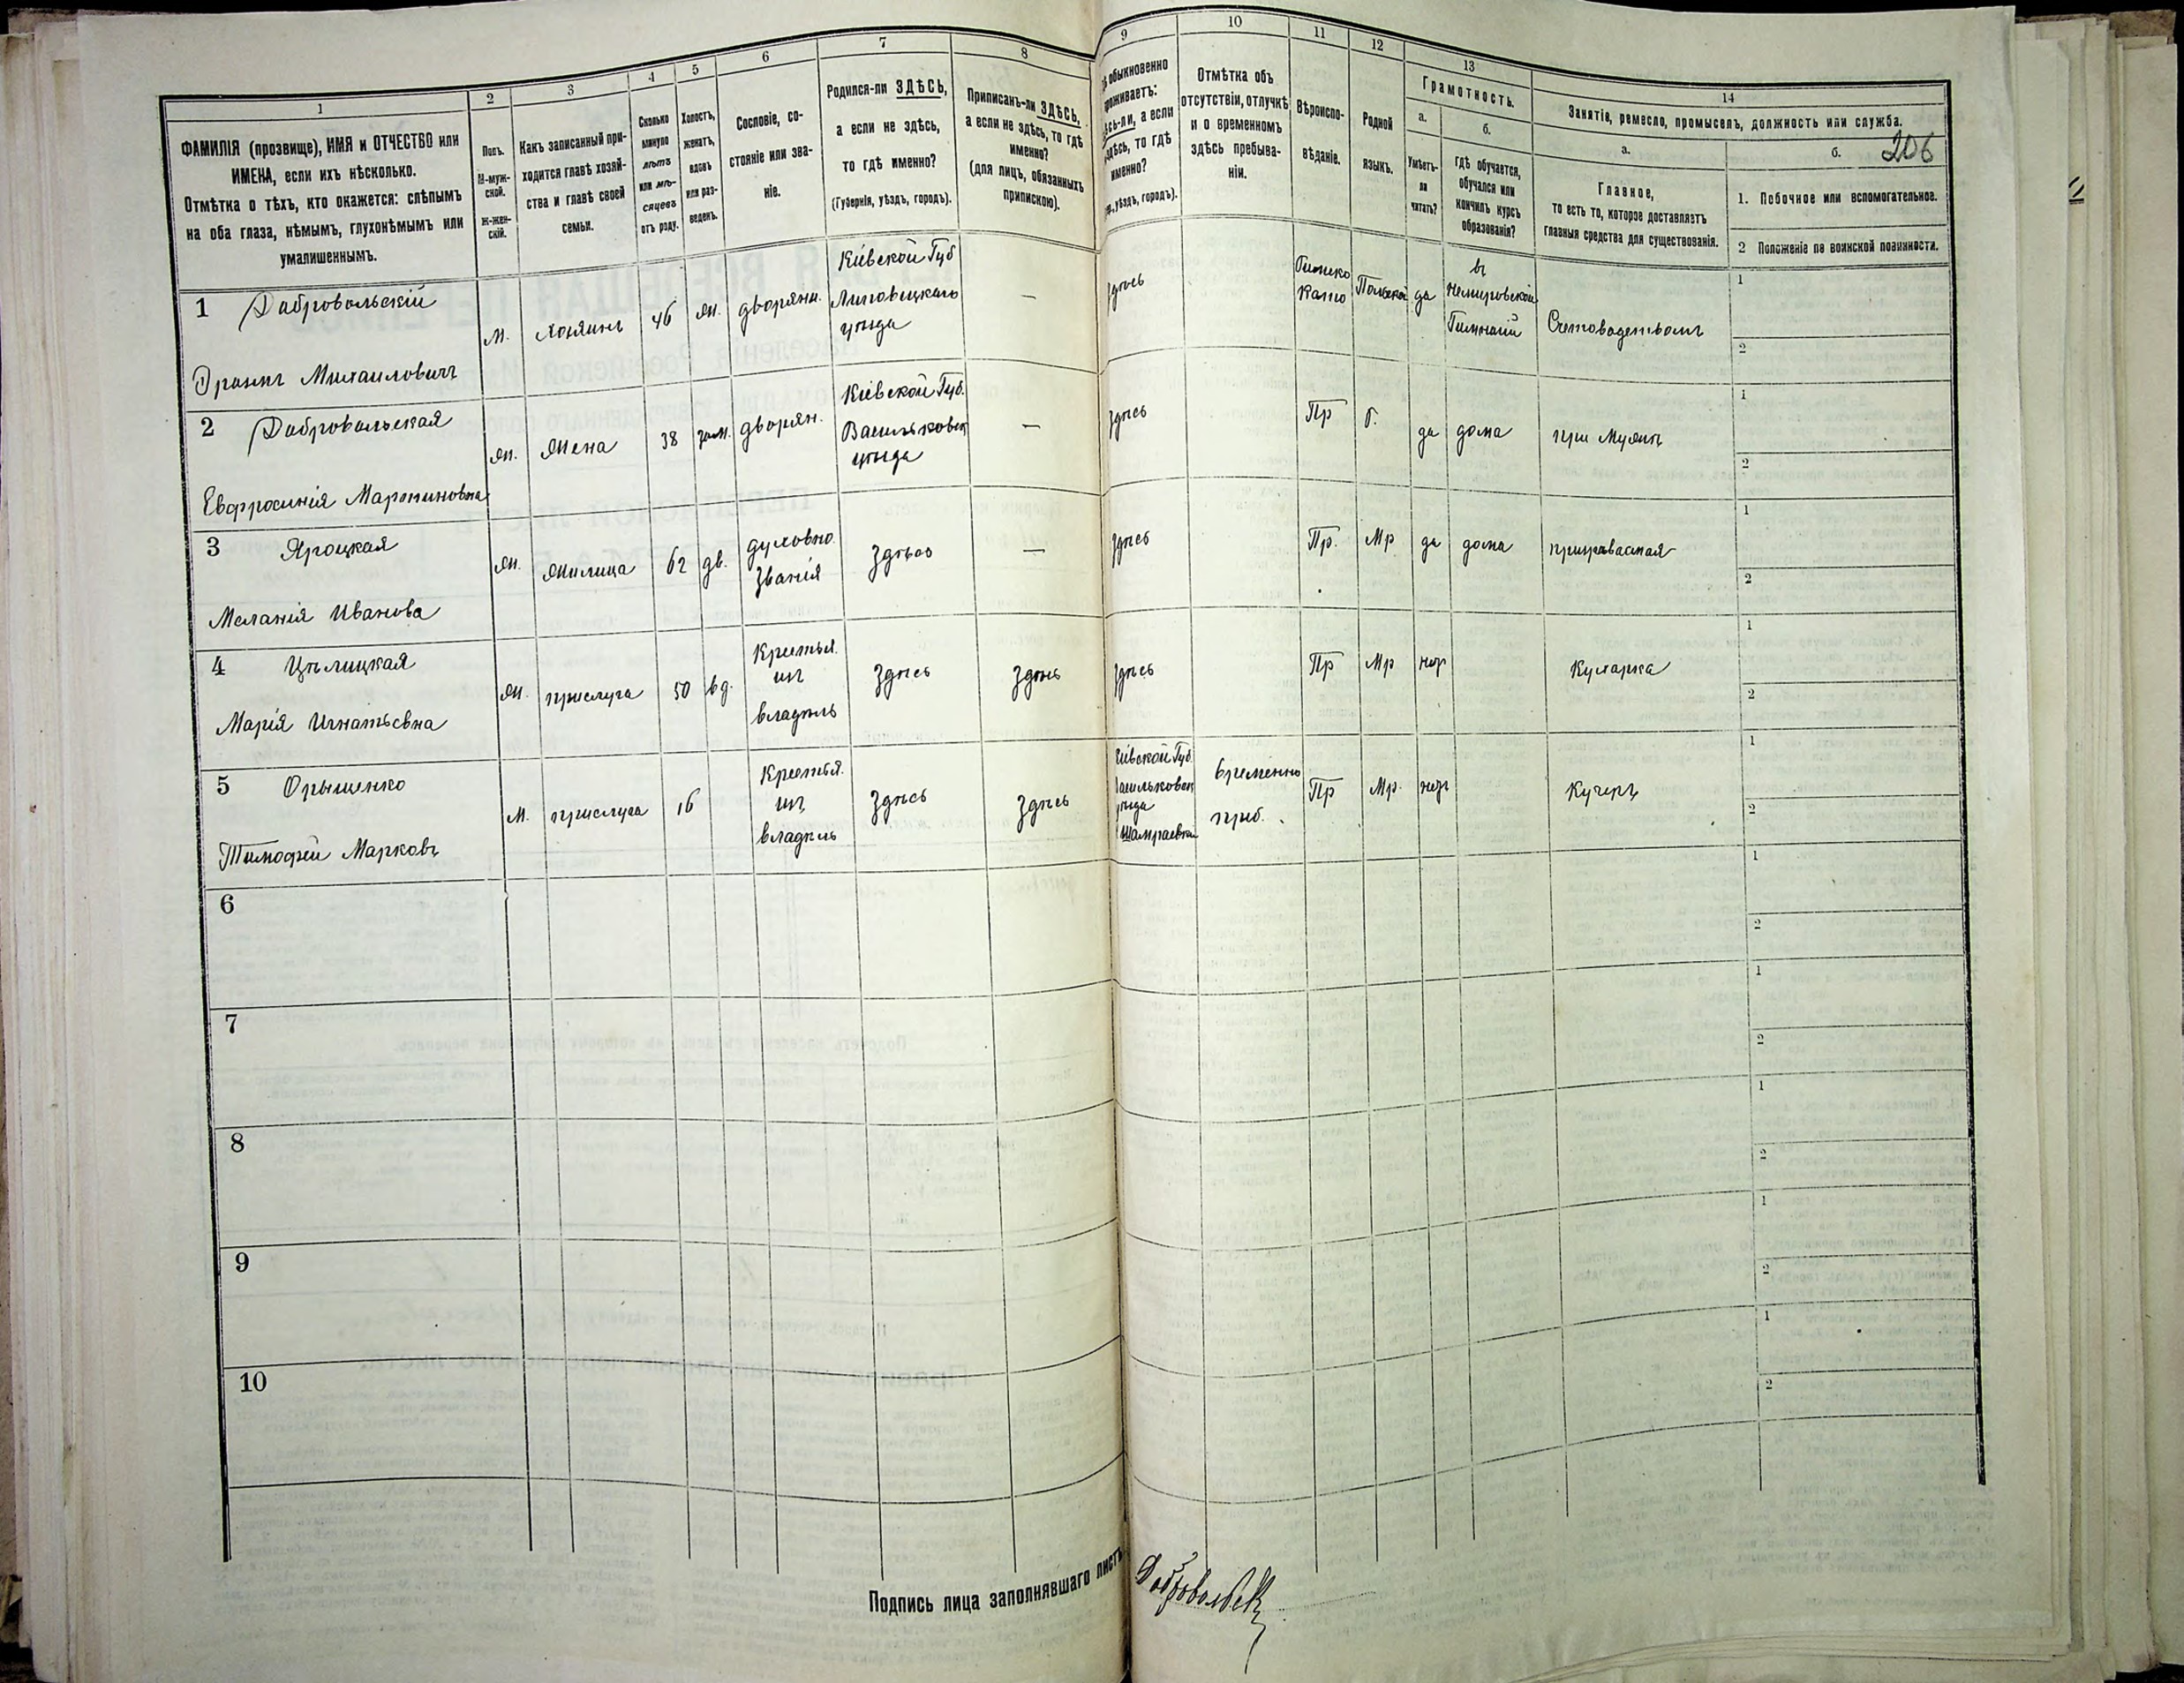 1
ФАМИЛІЯ (прозвище), ИМЯ и ОТЧЕСТВО или
ИМЕНА, если ихъ нѣсколько.
Отмѣтка о тѣхъ, кто окажется: слѣпымъ
на оба глаза, нѣмымъ, глухонѣмымъ или
умалишеннымъ.
2
Полъ.
М-муж-
ской.
Ж-жен-
скій.
3
Какъ записанный при-
ходится главѣ хозяй-
ства и главѣ своей
семьи.
4
Сколько
минуло
лѣтъ
или мѣ-
сяцевъ
отъ роду.
5
Холостъ,
женатъ,
вдовъ
или раз-
веденъ.
6
Сословіе, со-
стояніе или зва-
ніе.
7
Родился-ли ЗДѢСЬ,
а если не здѣсь,
то гдѣ именно?
(Губернія, уѣздъ, городъ).
8
Приписанъ-ли ЗДѢСЬ,
а если не здѣсь, то гдѣ
именно?
(для лицъ, обязанныхъ
припискою).
9
обыкновенно
проживаетъ:
здѣсь-ли, а если
не здѣсь, то гдѣ
именно?
уѣздъ, городъ).
10
Отмѣтка объ
отсутствіи, отлучкѣ
и о временномъ
здѣсь пребыва-
ніи.
11
Вѣроиспо-
вѣданіе.
12
Родной
языкъ.
13
Грамотность.
а.
Умѣетъ-
ли
читать?
б.
гдѣ обучается,
обучался или
кончилъ курсъ
образованія?
14
Занятіе, ремесло, промыселъ, должность или служба.
а.
Главное,
то есть то, которое доставляетъ
главныя средства для существованія.
б.
206
1. Побочное или вспомогательное.
2 Положеніе по воинской повинности.
1 Добровольскій
Михаиловичъ
м.
хозяинъ
46
жн.
дворянн.
Кіевской Губ
Липовецкаго
уѣзда
—
здѣсь
Римско
Като
Польскій
да
въ
Немировской
Гимназіи
Счетоводствомъ
1
2
2 Добровольская
Евфросинія Мартиновна
жн.
жена
38
зам.
дворян.
Кіевской Губ.
Васильковск
уѣзда
—
здѣсь
Пр
да
дома
при мужѣ
1
2
3 Яроцкая
Меланія Иванова
жн.
жилица
62
дв.
духовно
званія
здѣсь
—
здѣсь
Пр.
Мр
да
дома
1
2
4 Цѣлицкая
Марія Игнатьевна
жн.
прислуга
50
вд.
Крестья.
изъ
владѣль
здѣсь
здѣсь
здѣсь
Пр
Мр
нѣт
Кухарка
1
2
5 Орыщенко
Тимофей Марковъ
м.
прислуга
16
Крестья.
изъ
владѣль
здѣсь
здѣсь
Кіевской Губ.
Васильковск
уѣзда
Шамраевка
временно
приб.
Пр
Мр.
нѣт
Кучеръ
1
2
6
1
2
7
1
2
8
1
2
9
1
2
10
1
2
Подпись лица заполнявшаго листъ
Добровольск